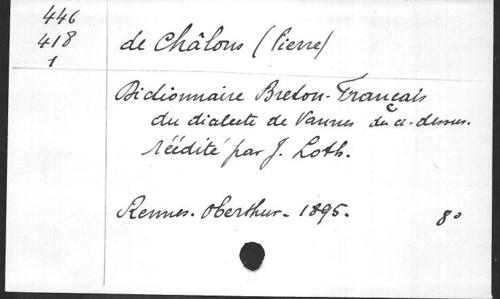 446
418
1
de Châlons (Pierre)
Dictionnaire Breton-Français
du dialecte de Vannes du ci-dessus.
réédité par J. Loth.
Rennes. Oberthur. 1895. 8°